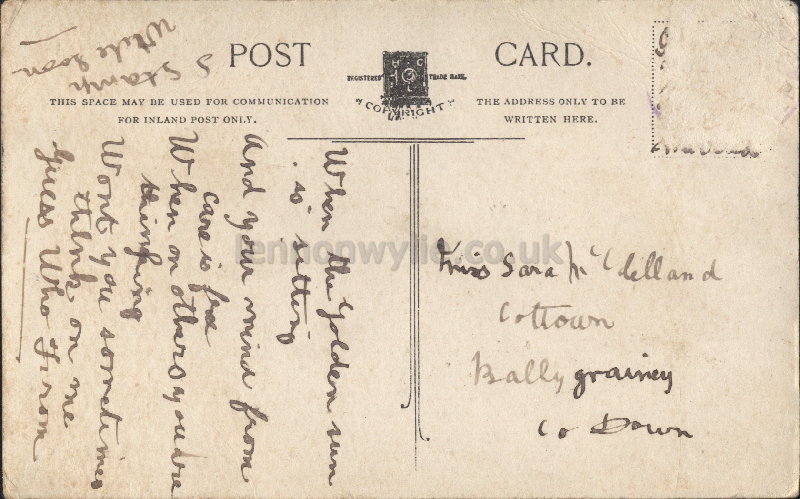 POST CARD.
REGISTERED H C TRADE MARK.
COPYRIGHT
THIS SPACE MAY BE USED FOR COMMUNICATION
FOR INLAND POST ONLY.
THE ADDRESS ONLY TO BE
WRITTEN HERE.
Write Soon
S Stamp
When the Golden sun
is setting
And your mind from
care is free
When on others you are
thinking
Wont you sometimes
think on me
Guess Who From
Miss Sara Mc Clelland
Cottown
Ballygrainey
Co Down
lennonwylie.co.uk